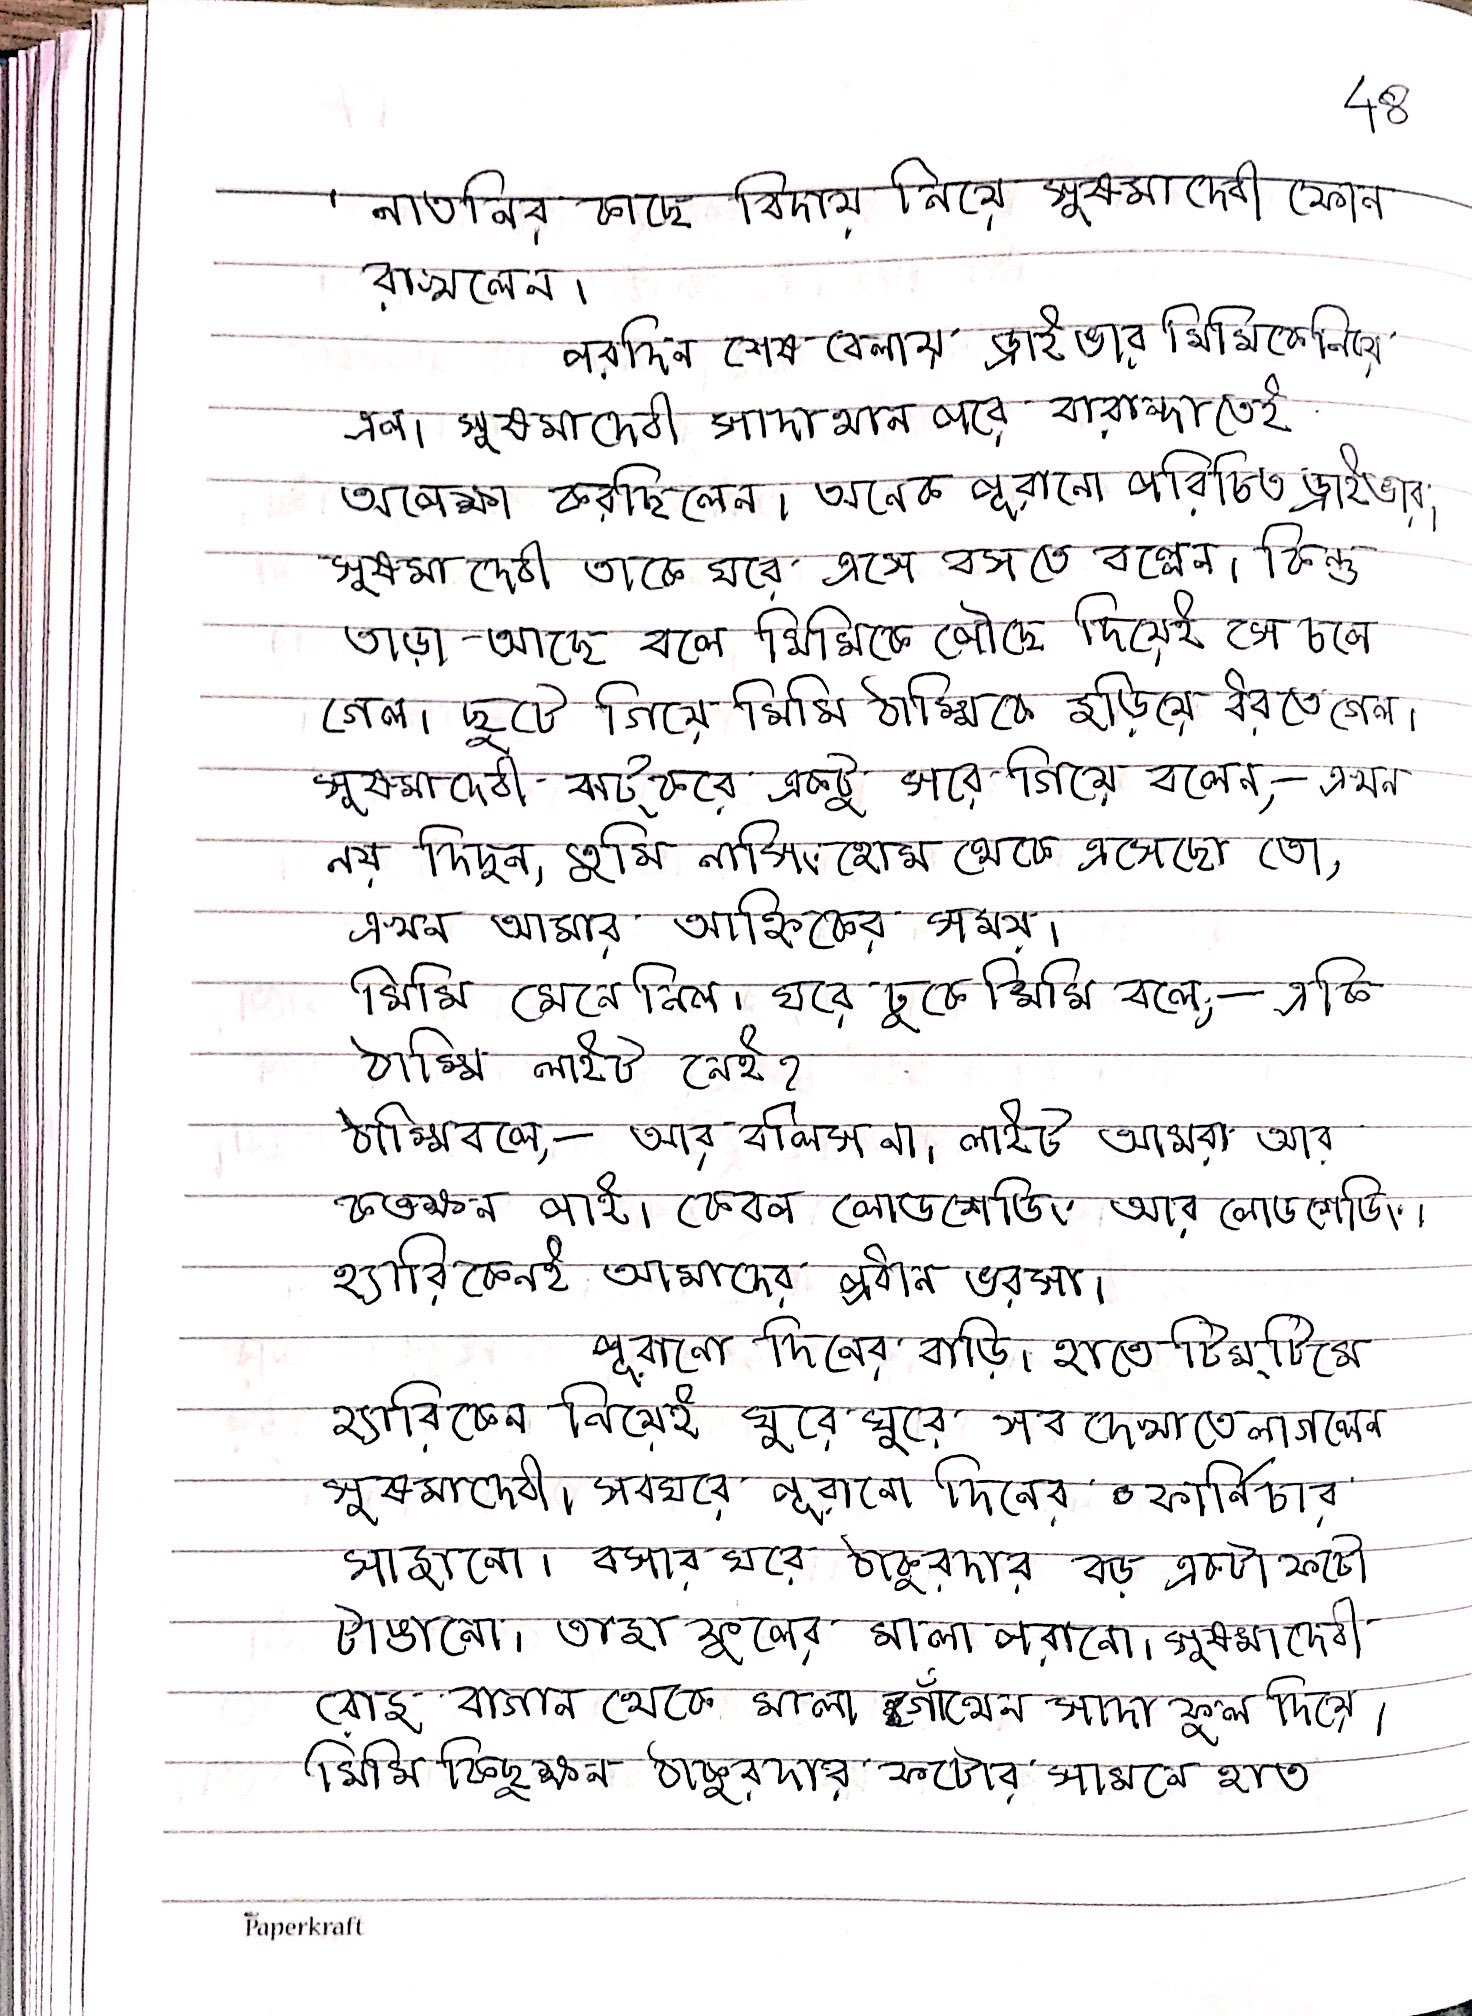 48
নাতনির কাছে বিদায় নিয়ে সুষমাদেবী ফোন
রাখলেন।
পরদিন শেষ বেলায় ড্রাইভার মিমিকে নিয়ে
এল। সুষমাদেবী সাদা থান পরে বারান্দাতেই
অপেক্ষা করছিলেন। অনেক পুরানো পরিচিত ড্রাইভার।
সুষমা দেবী তাকে ঘরে এসে বসতে বল্লেন। কিন্তু
তাড়া আছে বলে মিমিকে পৌছে দিয়েই সে চলে
গেল। ছুটে গিয়ে মিমি ঠাম্মিকে জড়িয়ে ধরতে গেল।
সুষমাদেবী ঝট্‌করে একটু সরে গিয়ে বলেন,— এখন
নয় দিদুন, তুমি নার্সিংহোম থেকে এসেছো তো,
এখন আমার আহ্নিকের সময়।
মিমি মেনে নিল। ঘরে ঢুকে মিমি বলে,— একি
ঠাম্মি লাইট নেই?
ঠাম্মি বলে,— আর বলিস না। লাইট আমরা আর
কতক্ষন পাই। কেবল লোডশেডিং আর লোডশেডিং।
হ্যারিকেনই আমাদের প্রধান ভরসা।
পুরানো দিনের বাড়ি। হাতে টিম্‌টিমে
হ্যারিকেন নিয়েই ঘুরে ঘুরে সব দেখাতে লাগলেন
সুষমাদেবী। সবঘরে পুরানো দিনের ফার্নিচার
সাজানো। বসার ঘরে ঠাকুরদার বড় একটা ফটো
টাঙানো। তাজা ফুলের মালা পরানো। সুষমাদেবী
রোজ বাগান থেকে মালা গাঁথেন সাদা ফুল দিয়ে।
মিমি কিছুক্ষন ঠাকুরদার ফটোর সামনে হাত
Paperkraft